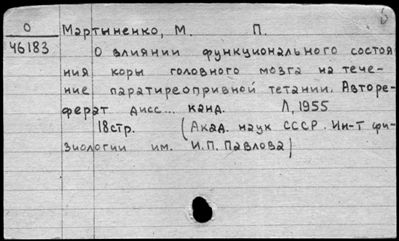 О
46183
Мартыненко, М. П.
О влиянии функционального состоя
ния коры головного мозга на тече-
ние паратиреопривной тетании. Авторе-
ферат дисс... канд. Л, 1955
18стр. (Акад. наук СССР. Ин-т фи-
зиологии им. И.П. Павлова)